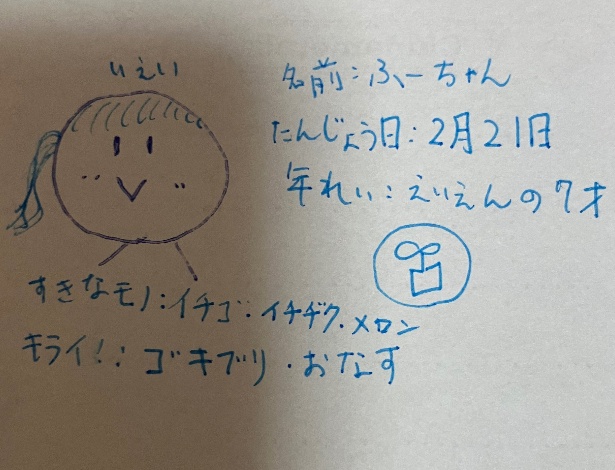 いえい
名前:ふーちゃん
たんじょう日:2月21日
年れい:えいえんの7才
すきなモノ:イチゴ・イチヂク・メロン
キライ!:ゴキブリ・おなす